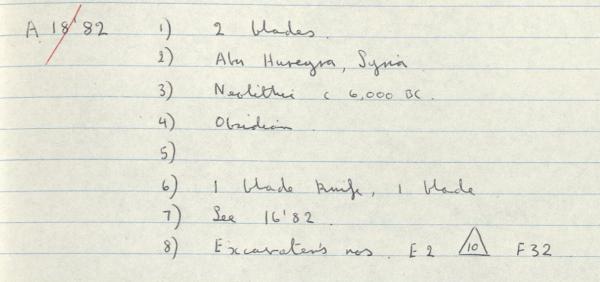 A 18'82 1) 2 blades.
2) Abu Hureyra, Syria
3) Neolithic c 6,000 BC.
4) Obsidian
5)
6) 1 blade knife, 1 blade
7) See 16'82.
8) Excavater's nos. E2 10 F32